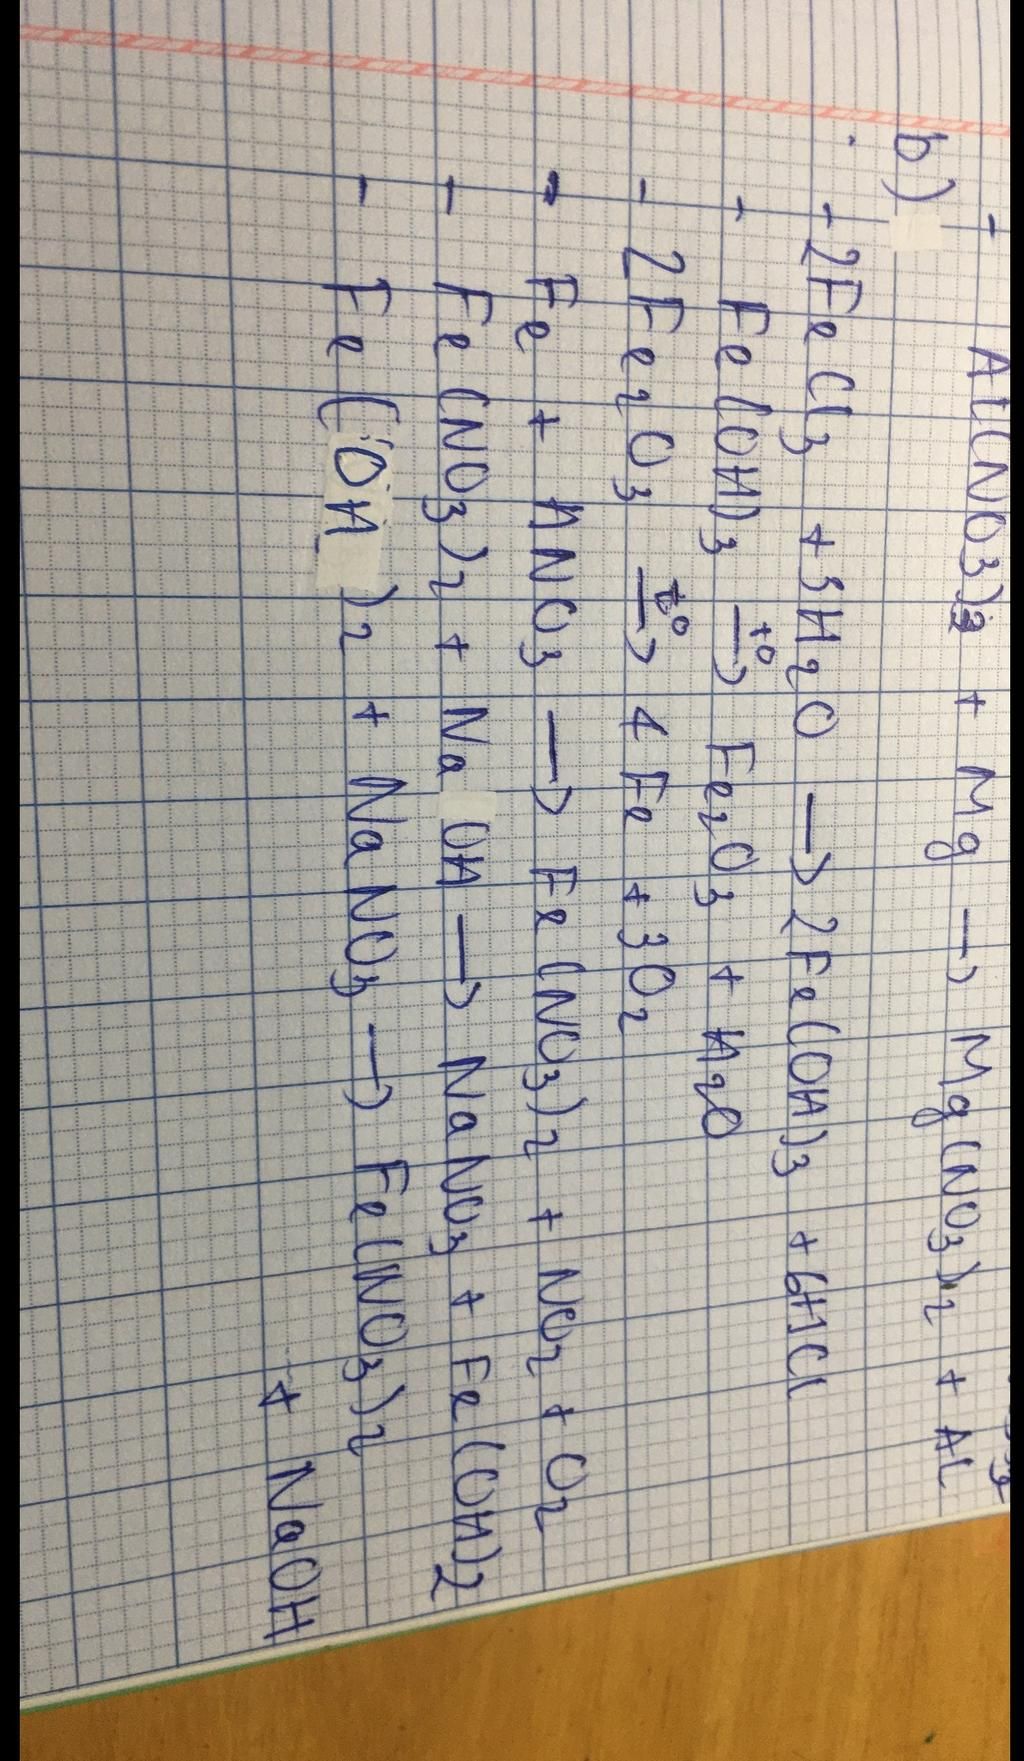 - Al(NO3)3 + Mg → Mg(NO3)2 + Al
b)
- 2FeCl3 + 3H2O → 2Fe(OH)3 + 6HCl
- Fe(OH)3 t° → Fe2O3 + H2O
- 2Fe2O3 t° → 4Fe + 3O2
- Fe + HNO3 → Fe(NO3)2 + NO2 + O2
- Fe(NO3)2 + NaOH → NaNO3 + Fe(OH)2
- Fe(OH)2 + NaNO3 → Fe(NO3)2
+ NaOH